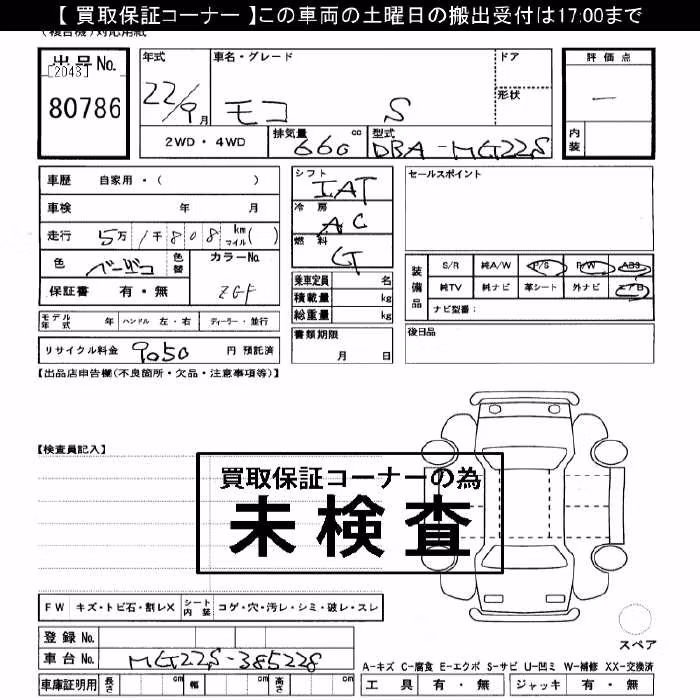 【 買取保証コーナー 】この車両の土曜日の搬出受付は17:00まで
(複合機)対応用紙
出品No.
[2043]
80786
年式
22/9月
車名・グレード
モコ S
ドア
形状
評価点
—
内装
2WD・4WD
排気量 660 cc
型式 DBA-MG22S
車歴 自家用・( )
車検 年 月
走行 5万1千808 km マイル( )
色 ベージュ
色替
カラーNo.
保証書 有・無
モデル年式 年 ハンドル 左・右 ディーラー・並行
リサイクル料金 9050 円 預託済
シフト IAT
冷房 AC
燃料
乗車定員 名
積載量 kg
総重量 kg
書類期限
月 日
セールスポイント
装備品
S/R 純A/W P/S P/W ABS
純TV 純ナビ 革シート 外ナビ エアB
ナビ型番:
後日品
【出品店申告欄(不良箇所・欠品・注意事項等)】
【検査員記入】
買取保証コーナーの為
未検査
FW キズ・トビ石・割レX シート内装 コゲ・穴・汚レ・シミ・破レ・スレ
登録 No.
車台 No. MG22S-385228
車庫証明用 長さ cm 幅 cm 高さ cm
スペア
A-キズ C-腐食 E-エクボ S-サビ U-凹ミ W-補修 XX-交換済
工具 有・無 ジャッキ 有・無